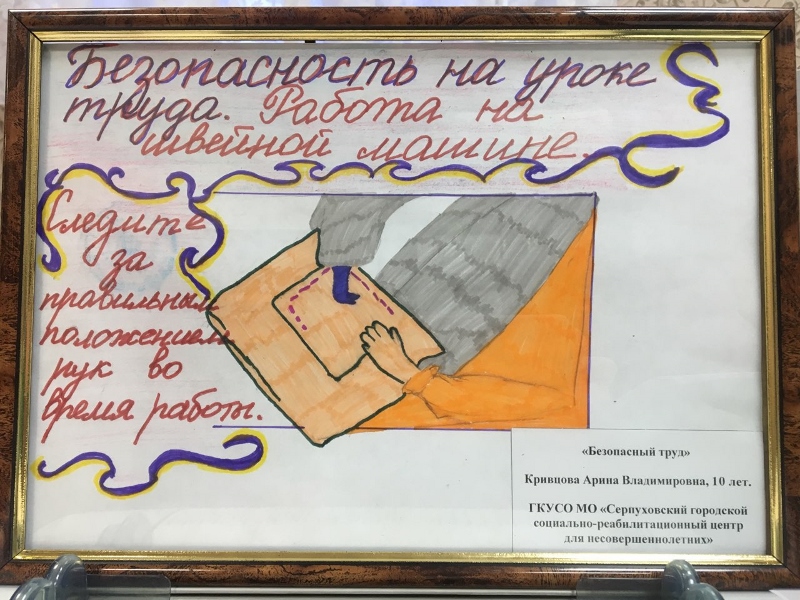 Безопасность на уроке
труда. Работа на
швейной машине.
Следите
за
правильным
положением
рук во
время работы.
«Безопасный труд»
Кривцова Арина Владимировна, 10 лет.
ГКУСО МО «Серпуховский городской
социально-реабилитационный центр
для несовершеннолетних»